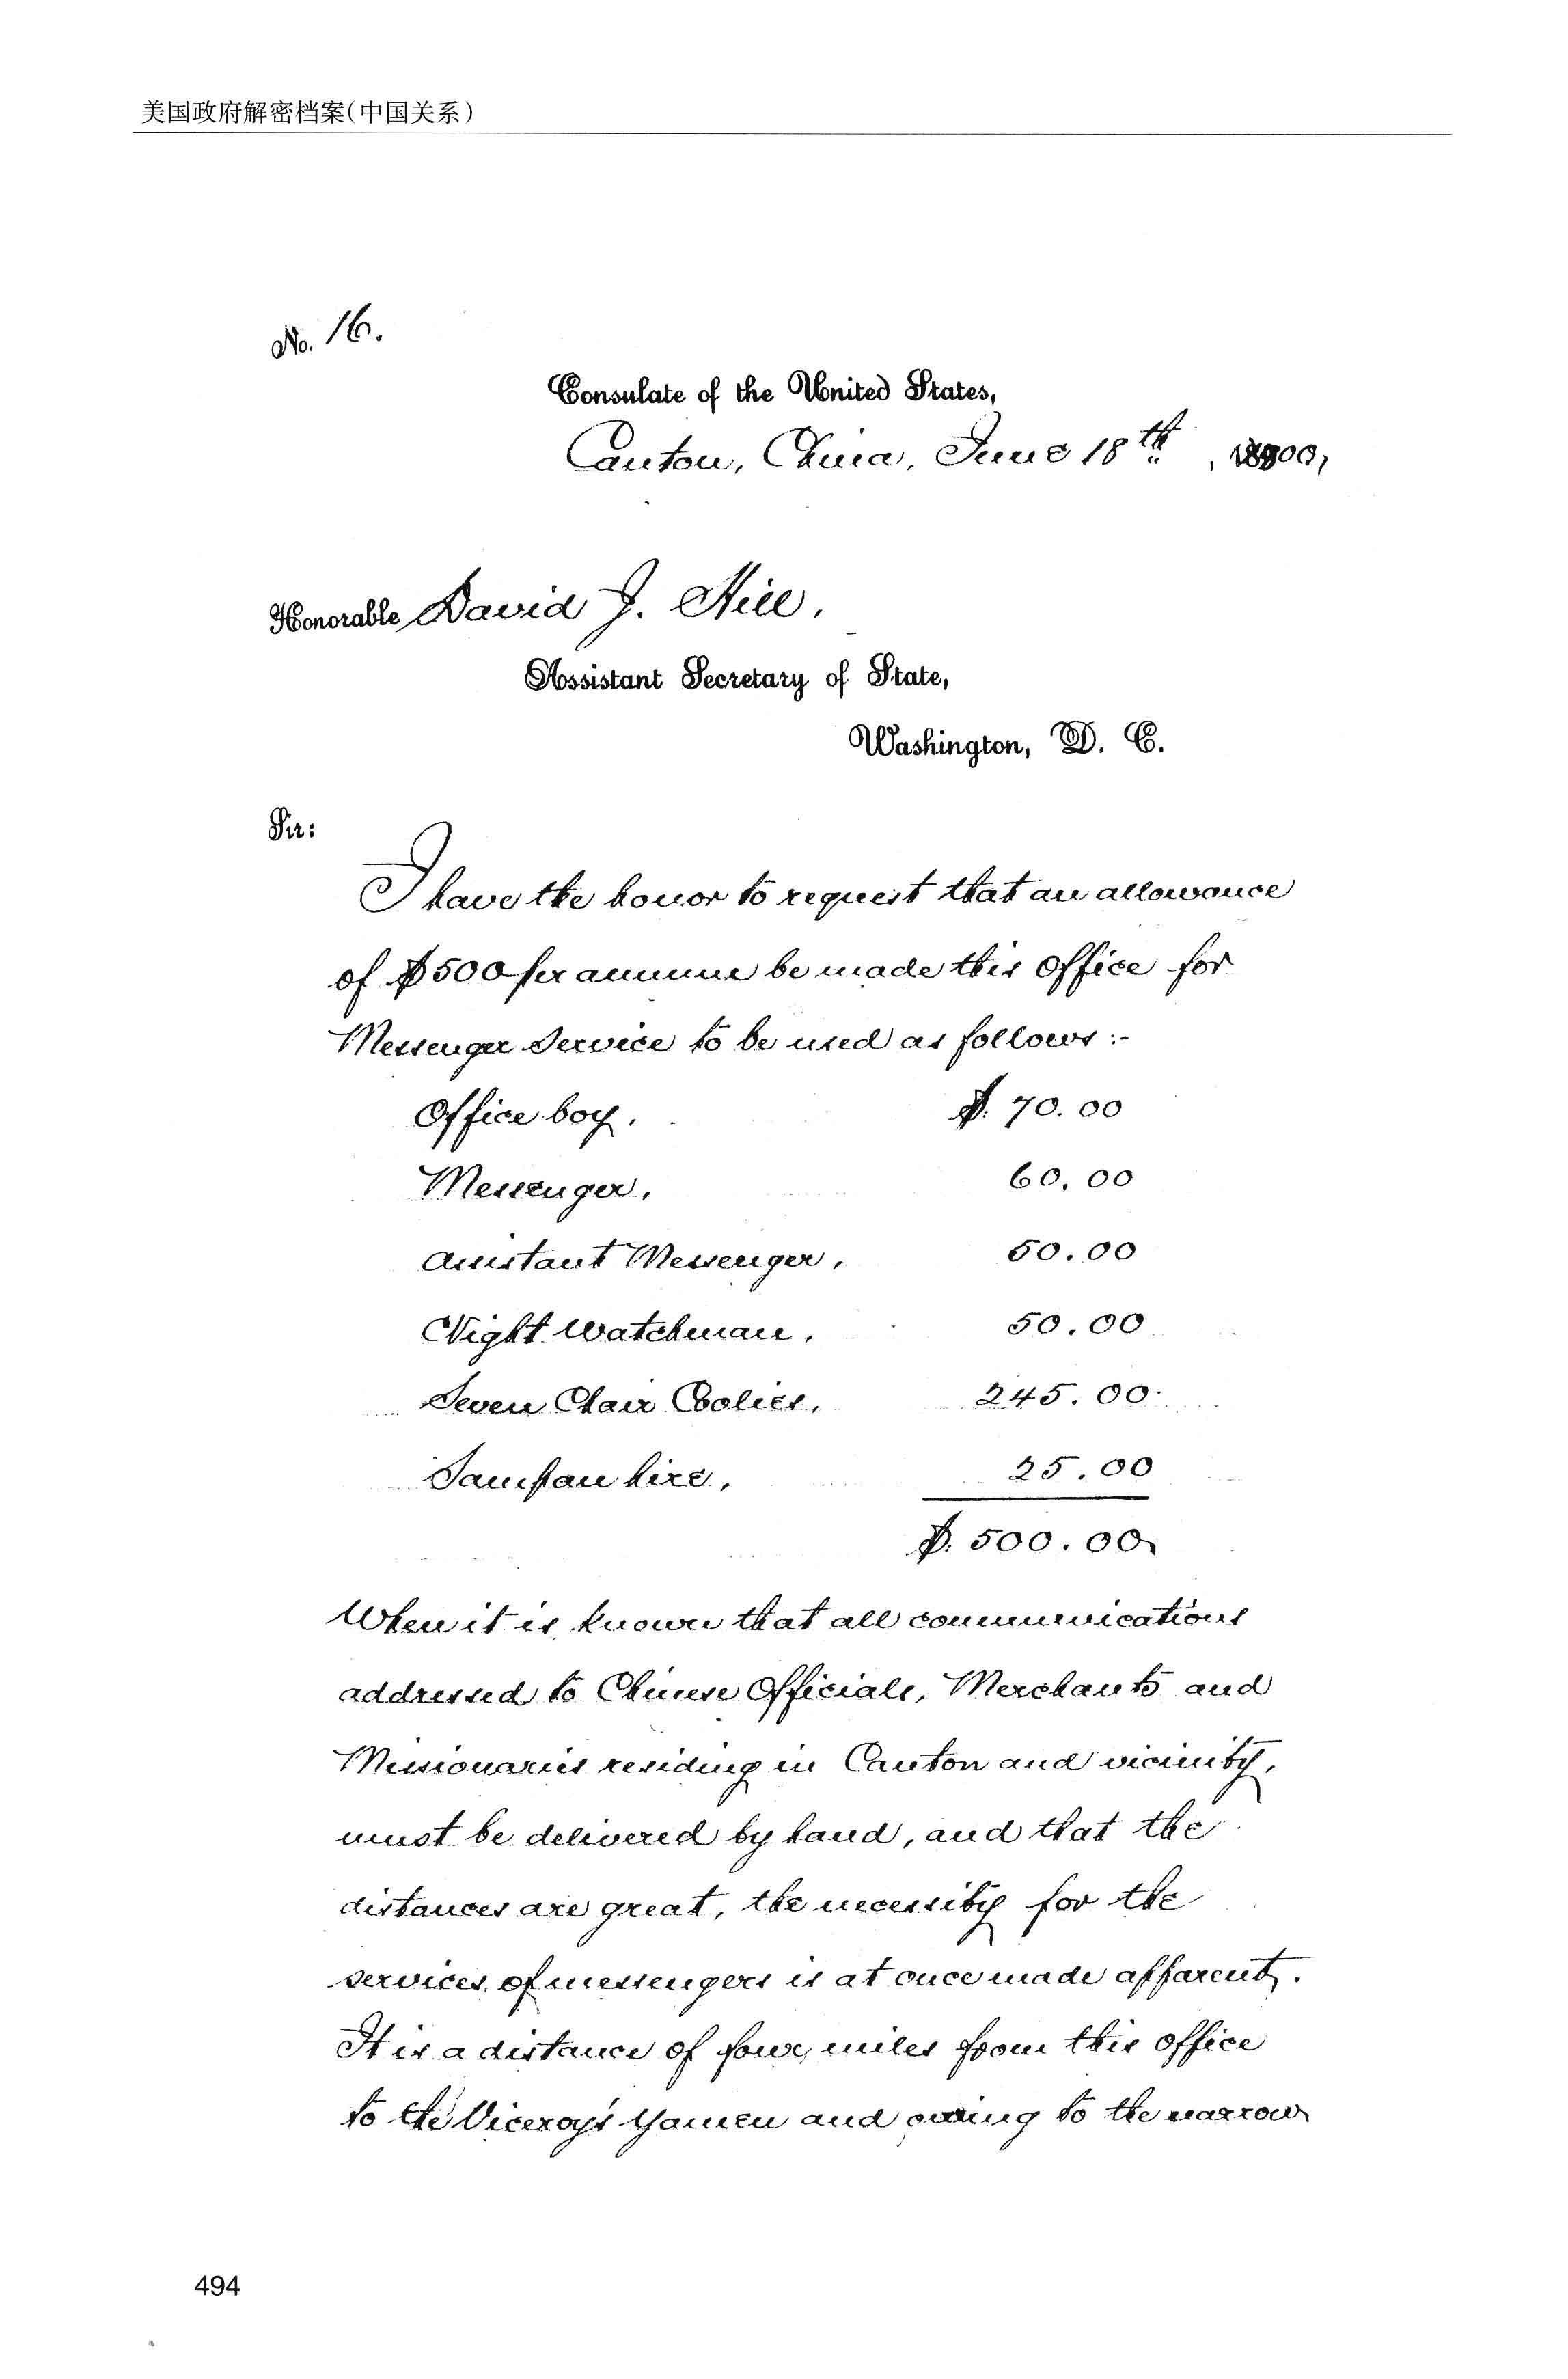 美国政府解密档案(中国关系)
No. 16.
Consulate of the United States,
Canton, China, June 18th, 1900,
Honorable David J. Hill,
Assistant Secretary of State,
Washington, D. C.
Sir:
I have the honor to request that an allowance
of $500 per annum be made this Office for
Messenger Service to be used as follows:-
Office boy. $. 70.00
Messenger, 60.00
Assistant Messenger, 50.00
Night Watchman, 50.00
Seven Chair Coolies, 245.00
Sampan hire, 25.00
$. 500.00
When it is known that all communications
addressed to Chinese Officials, Merchants and
Missionaries residing in Canton and vicinity,
must be delivered by hand, and that the
distances are great, the necessity for the
services of messengers is at once made apparent.
It is a distance of four miles from this office
to the Viceroy's Yamen and owing to the narrow
494